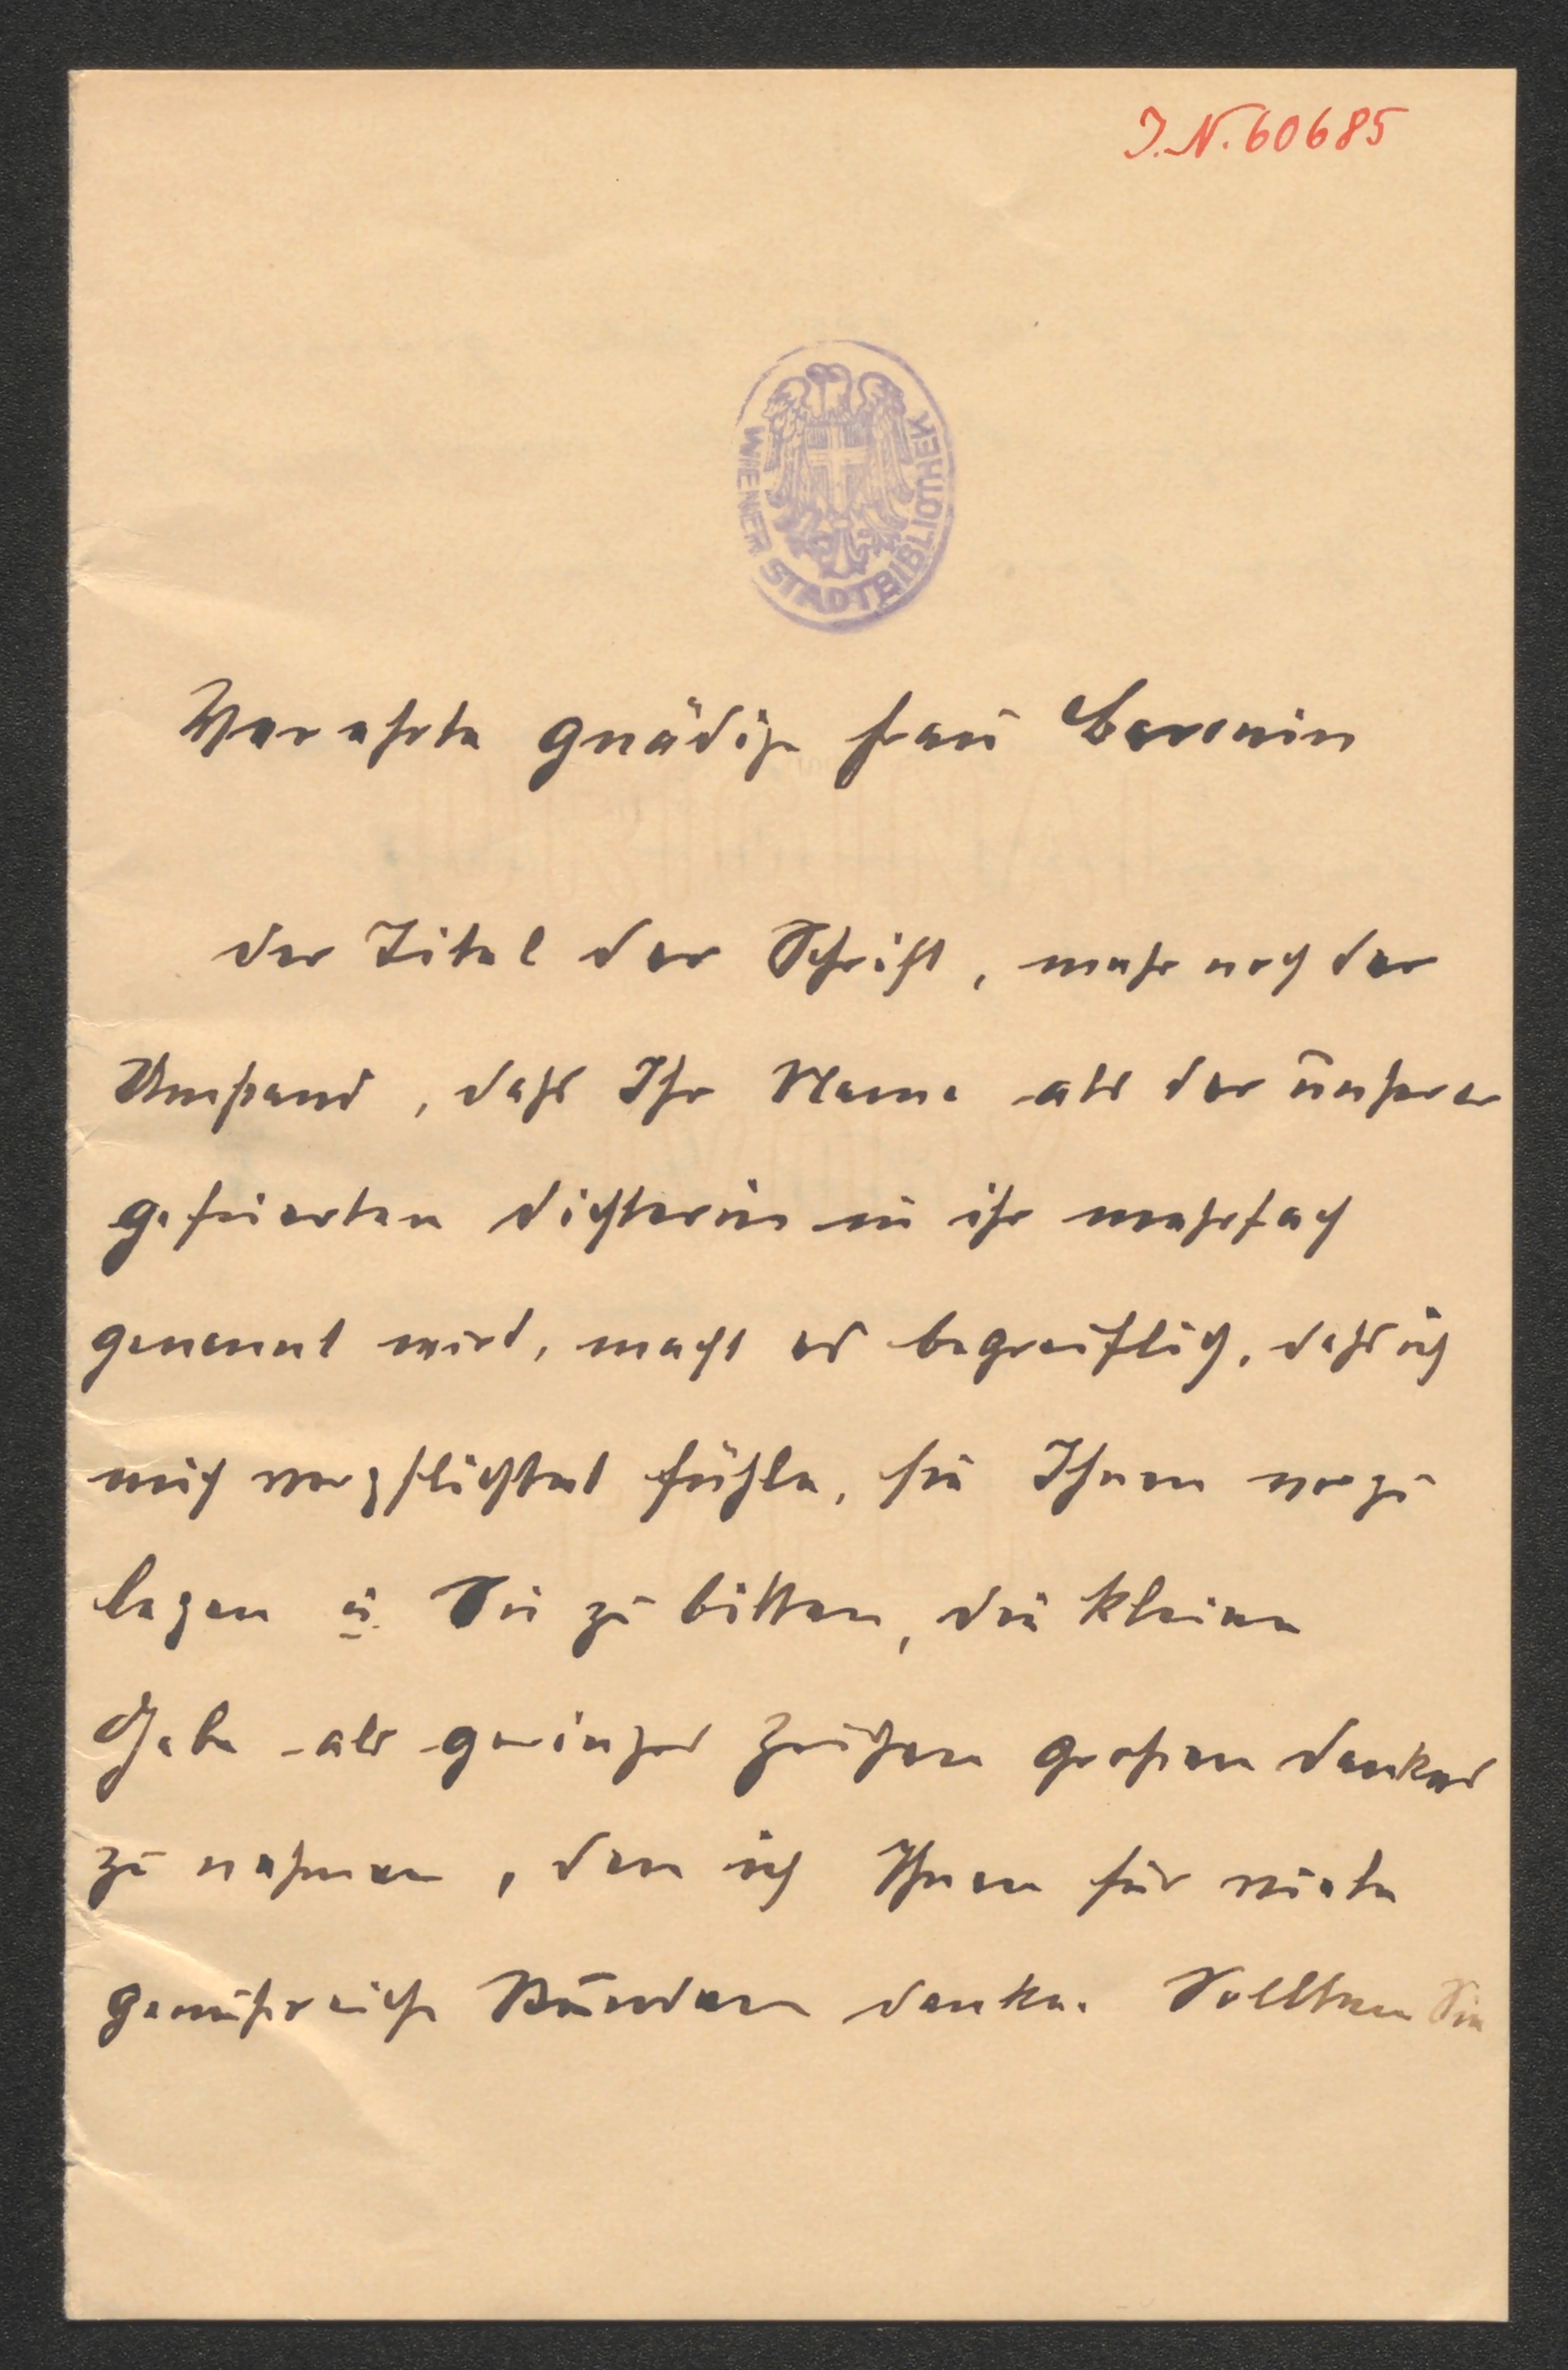 I.N. 60685
WIENER STADTBIBLIOTHEK
Verehrte gnädige Frau Baronin
der Titel der Schrift, mehr noch der
Umstand, daſs Ihr Name als der unserer
gefeierten Dichterin in ihr mehrfach
genannt wird, macht es begreiflich, daſs ich
mich verpflichtet fühle, sie Ihnen vorzu
legen u. Sie zu bitten, die kleine
Gabe als geringes Zeichen großen Dankes
zu nehmen, den ich Ihnen für viele
genußreiche Stunden danke. Sollten Sie